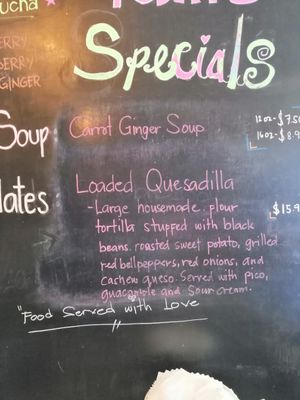 ucha
ERRY
BERRY
GINGER
Specials
Soup: Carrot Ginger Soup
12oz-$7.50
16oz-$8.9
lates:
Loaded Quesadilla
-Large housemade. flour
$15.9
tortilla stupped with black
beans. roasted sweet potato, grilled
red bell peppers, red onions, and
cashew queso. Served with pico,
guacamole and Sour cream.
"Food Served with Love
"